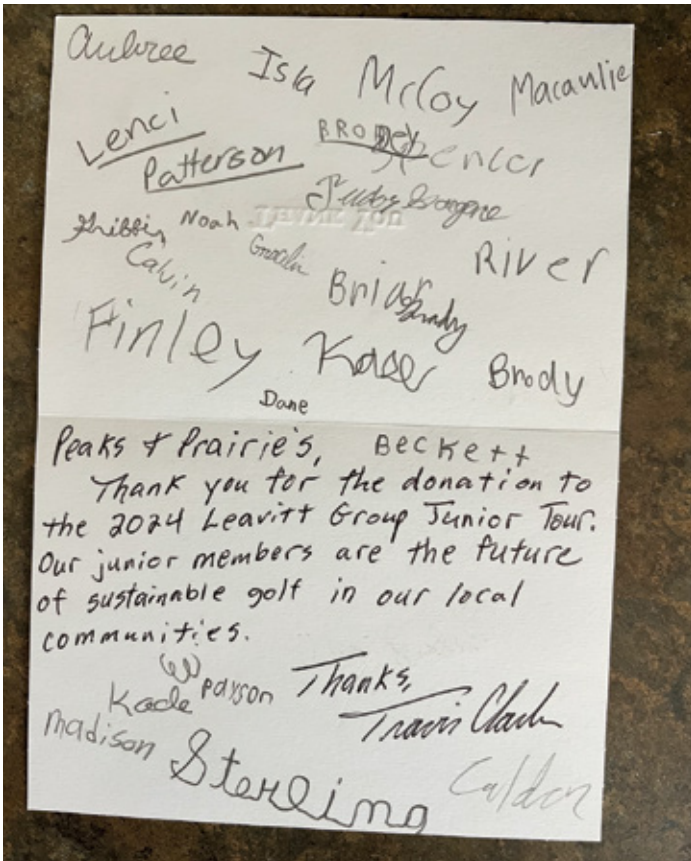 Aubree Isla McCoy Macaulie
Lenci
Patterson
BRODEY Spencer
THANK YOU
Griffin Noah
Calvin Gracelin
River
Briar Brady
Finley Kase Brody
Dane
Peaks & Prairie's, Beckett
Thank you for the donation to
the 2024 Leavitt Group Junior Tour.
Our junior members are the future
of sustainable golf in our local
communities.
Thanks,
Travis Clark
Kade Payson
Madison Sterling